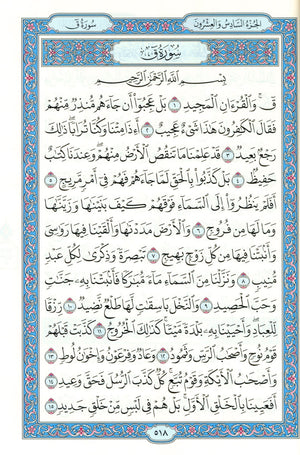 الجزء السادس والعشرون سورة ق
سُورَةُ قٓ
بِسْمِ اللَّهِ الرَّحْمَٰنِ الرَّحِيمِ
قٓ وَالْقُرْءَانِ الْمَجِيدِ ١ بَلْ عَجِبُوٓا۟ أَن جَآءَهُم مُّنذِرٌ مِّنْهُمْ
فَقَالَ الْكَٰفِرُونَ هَٰذَا شَىْءٌ عَجِيبٌ ٢ أَءِذَا مِتْنَا وَكُنَّا تُرَابًا ذَٰلِكَ
رَجْعٌۢ بَعِيدٌ ٣ قَدْ عَلِمْنَا مَا تَنقُصُ الْأَرْضُ مِنْهُمْ وَعِندَنَا كِتَٰبٌ
حَفِيظٌۢ ٤ بَلْ كَذَّبُوا۟ بِالْحَقِّ لَمَّا جَآءَهُمْ فَهُمْ فِىٓ أَمْرٍ مَّرِيجٍ ٥
أَفَلَمْ يَنظُرُوٓا۟ إِلَى السَّمَآءِ فَوْقَهُمْ كَيْفَ بَنَيْنَٰهَا وَزَيَّنَّٰهَا
وَمَا لَهَا مِن فُرُوجٍ ٦ وَالْأَرْضَ مَدَدْنَٰهَا وَأَلْقَيْنَا فِيهَا رَوَٰسِىَ
وَأَنۢبَتْنَا فِيهَا مِن كُلِّ زَوْجٍۭ بَهِيجٍ ٧ تَبْصِرَةً وَذِكْرَىٰ لِكُلِّ عَبْدٍ
مُّنِيبٍ ٨ وَنَزَّلْنَا مِنَ السَّمَآءِ مَآءً مُّبَٰرَكًا فَأَنۢبَتْنَا بِهِۦ جَنَّٰتٍ
وَحَبَّ الْحَصِيدِ ٩ وَالنَّخْلَ بَاسِقَٰتٍ لَّهَا طَلْعٌ نَّضِيدٌ ١٠ رِّزْقًا
لِّلْعِبَادِ وَأَحْيَيْنَا بِهِۦ بَلْدَةً مَّيْتًا كَذَٰلِكَ الْخُرُوجُ ١١ كَذَّبَتْ قَبْلَهُمْ
قَوْمُ نُوحٍ وَأَصْحَٰبُ الرَّسِّ وَثَمُودُ ١٢ وَعَادٌ وَفِرْعَوْنُ وَإِخْوَٰنُ لُوطٍ ١٣
وَأَصْحَٰبُ الْأَيْكَةِ وَقَوْمُ تُبَّعٍ كُلٌّ كَذَّبَ الرُّسُلَ فَحَقَّ وَعِيدِ ١٤
أَفَعَيِينَا بِالْخَلْقِ الْأَوَّلِ بَلْ هُمْ فِى لَبْسٍ مِّنْ خَلْقٍ جَدِيدٍ ١٥
٥١٨